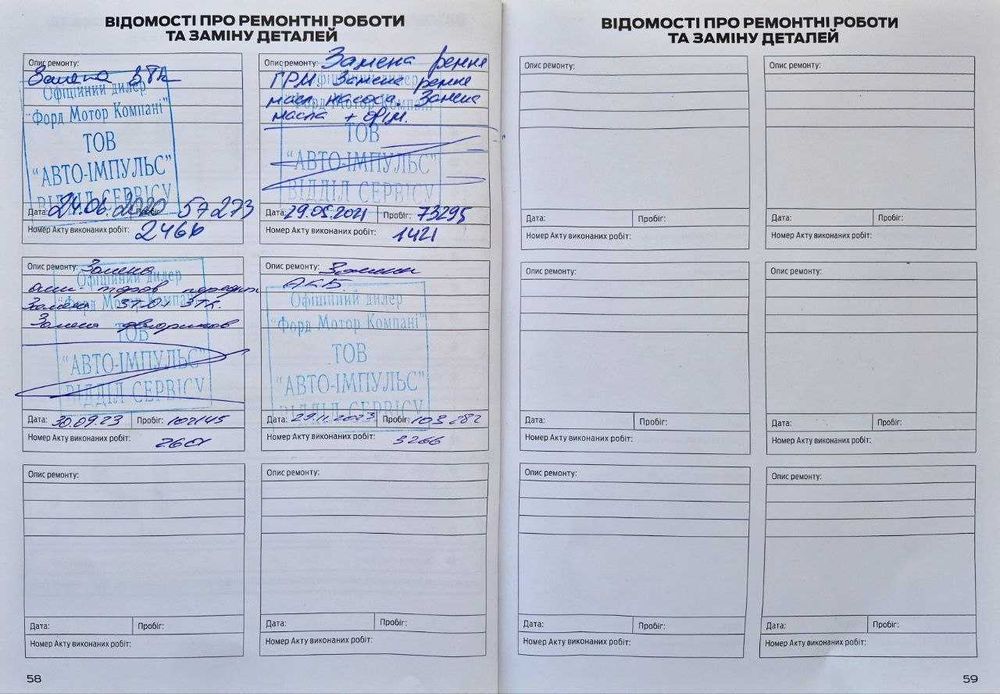 ВІДОМОСТІ ПРО РЕМОНТНІ РОБОТИ
ТА ЗАМІНУ ДЕТАЛЕЙ
Опис ремонту:
Замена ЗТК
Офіційний дилер
"Форд Мотор Компані"
ТОВ
"АВТО-ІМПУЛЬС"
ВІДДІЛ СЕРВІСУ
Дата: 24.06.2020 57273
Номер Акту виконаних робіт: 2466
Опис ремонту: Замена ремня
ГРМ. Замена ремня
масл. насоса. Замена
масла + фільт.
ТОВ
"АВТО-ІМПУЛЬС"
ВІДДІЛ СЕРВІСУ
Дата: 29.05.2021 Пробіг: 73295
Номер Акту виконаних робіт: 1421
Опис ремонту: Замена
Офіційний дилер
Замена ЗТК.
Замена
ТОВ
"АВТО-ІМПУЛЬС"
ВІДДІЛ СЕРВІСУ
Дата: 30.09.23 Пробіг: 102145
Номер Акту виконаних робіт: 2601
Опис ремонту: Замена
АКБ
Офіційний дилер
"Форд Мотор Компані"
ТОВ
"АВТО-ІМПУЛЬС"
ВІДДІЛ СЕРВІСУ
Дата: 29.11.2023 Пробіг: 103282
Номер Акту виконаних робіт: 3266
Опис ремонту:
Дата: Пробіг:
Номер Акту виконаних робіт:
Опис ремонту:
Дата: Пробіг:
Номер Акту виконаних робіт:
58
ВІДОМОСТІ ПРО РЕМОНТНІ РОБОТИ
ТА ЗАМІНУ ДЕТАЛЕЙ
Опис ремонту:
Дата: Пробіг:
Номер Акту виконаних робіт:
Опис ремонту:
Дата: Пробіг:
Номер Акту виконаних робіт:
Опис ремонту:
Дата: Пробіг:
Номер Акту виконаних робіт:
Опис ремонту:
Дата: Пробіг:
Номер Акту виконаних робіт:
Опис ремонту:
Дата: Пробіг:
Номер Акту виконаних робіт:
Опис ремонту:
Дата: Пробіг:
Номер Акту виконаних робіт:
59